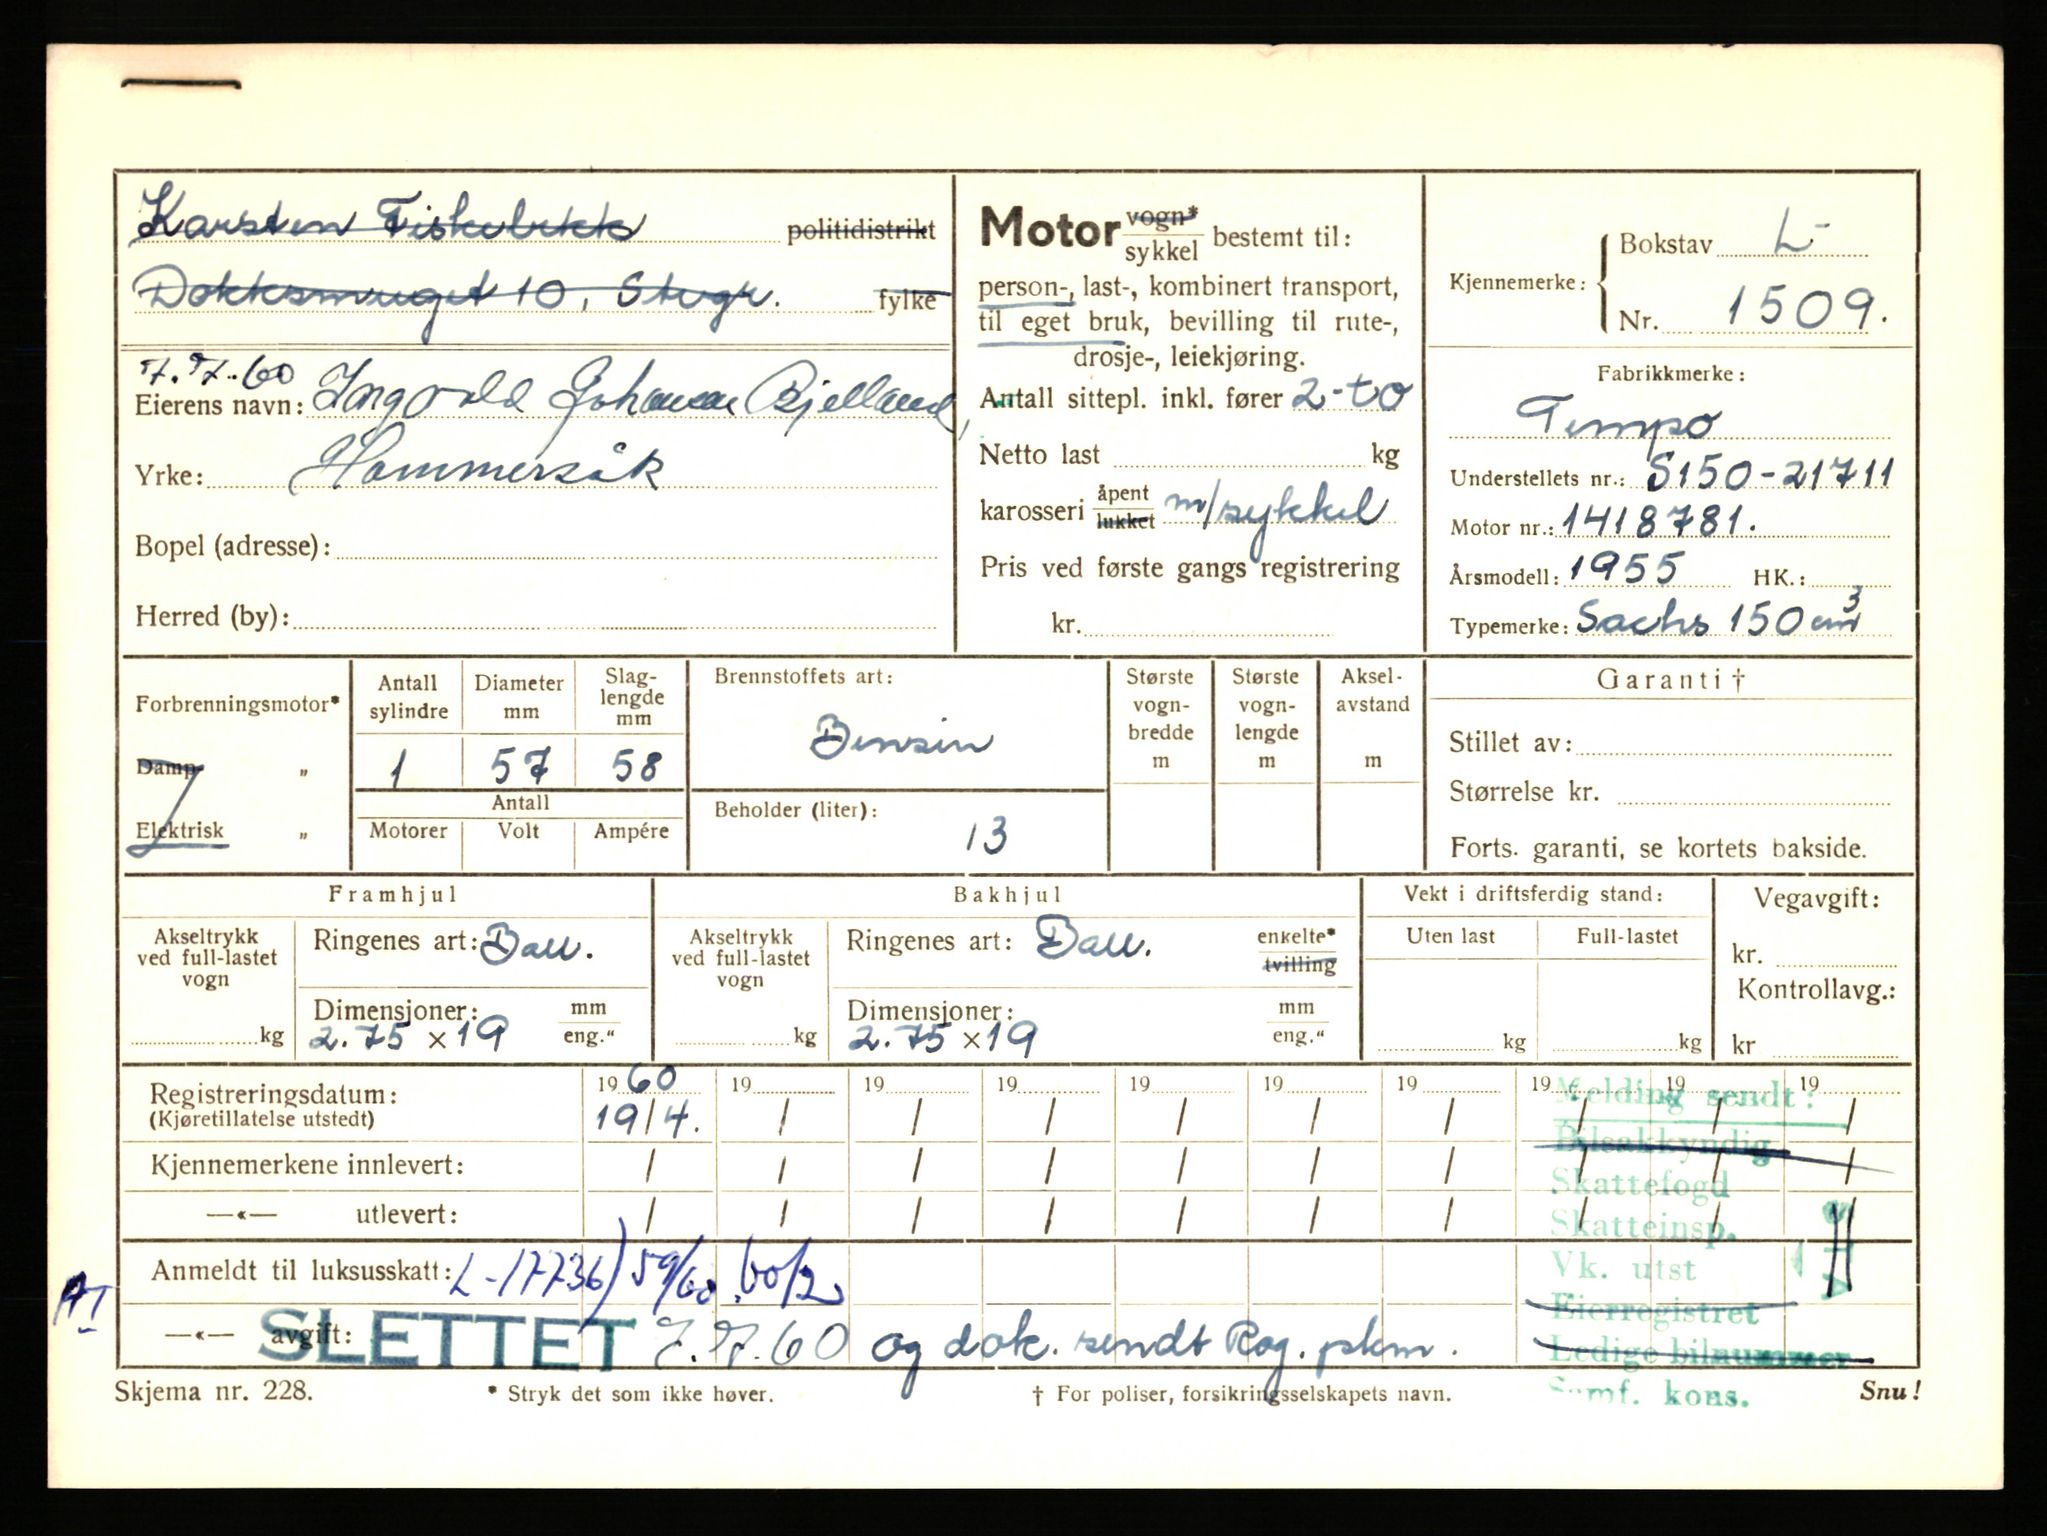 Karsten Fiskebekk politidistrikt
Dokksmuget 10, Stvgr. fylke
7.7.60
Eierens navn: Ingvald Johannes Bjelland,
Yrke: Hommersåk
Bopel (adresse):
Herred (by):
Motor vogn* sykkel bestemt til:
person-, last-, kombinert transport,
til eget bruk, bevilling til rute-,
drosje-, leiekjøring.
Antall sittepl. inkl. fører 2-to
Netto last kg
karosseri åpent lukket m/sykkel
Pris ved første gangs registrering
kr.
Kjennemerke: Bokstav L-
Nr. 1509.
Fabrikkmerke:
Tempo
Understellets nr.: S150-21711
Motor nr.: 1418781.
Årsmodell: 1955 HK.:
Typemerke: Sachs 150 cm3
Forbrenningsmotor*
Damp „
Elektrisk „
Antall sylindre
Diameter mm
Slag-
lengde
mm
1 57 58
Antall
Motorer Volt Ampére
Brennstoffets art:
Bensin
Beholder (liter):
13
Største
vogn-
bredde
m
Største
vogn-
lengde
m
Aksel-
avstand
m
Garanti †
Stillet av:
Størrelse kr.
Forts. garanti, se kortets bakside.
Framhjul
Akseltrykk
ved full-lastet
vogn
kg
Ringenes art: Ball.
Dimensjoner: mm
2.75 x 19 eng."
Bakhjul
Akseltrykk
ved full-lastet
vogn
kg
Ringenes art: Ball. enkelte*
tvilling
Dimensjoner: mm
2.75 x 19 eng."
Vekt i driftsferdig stand:
Uten last Full-lastet
kg kg
Vegavgift:
kr.
Kontrollavg.:
kr
Registreringsdatum: 19 60 19 19 19 19 19 19 19 19 19
(Kjøretillatelse utstedt) 19/4. / / / / / / / / /
Kjennemerkene innlevert: / / / / / / / / / /
—«— utlevert: / / / / / / / / / /
Anmeldt til luksusskatt: L-17736) 59/60 60/2
AT
—«— avgift: SLETTET 7.7.60 og dok. sendt Rog. pkm.
Melding sendt:
Bilsakkyndig
Skattefogd
Skatteinsp.
Vk. utst
Eierregistret
Ledige bilnummer
Samf. kons.
Skjema nr. 228. * Stryk det som ikke høver. † For poliser, forsikringsselskapets navn. Snu!